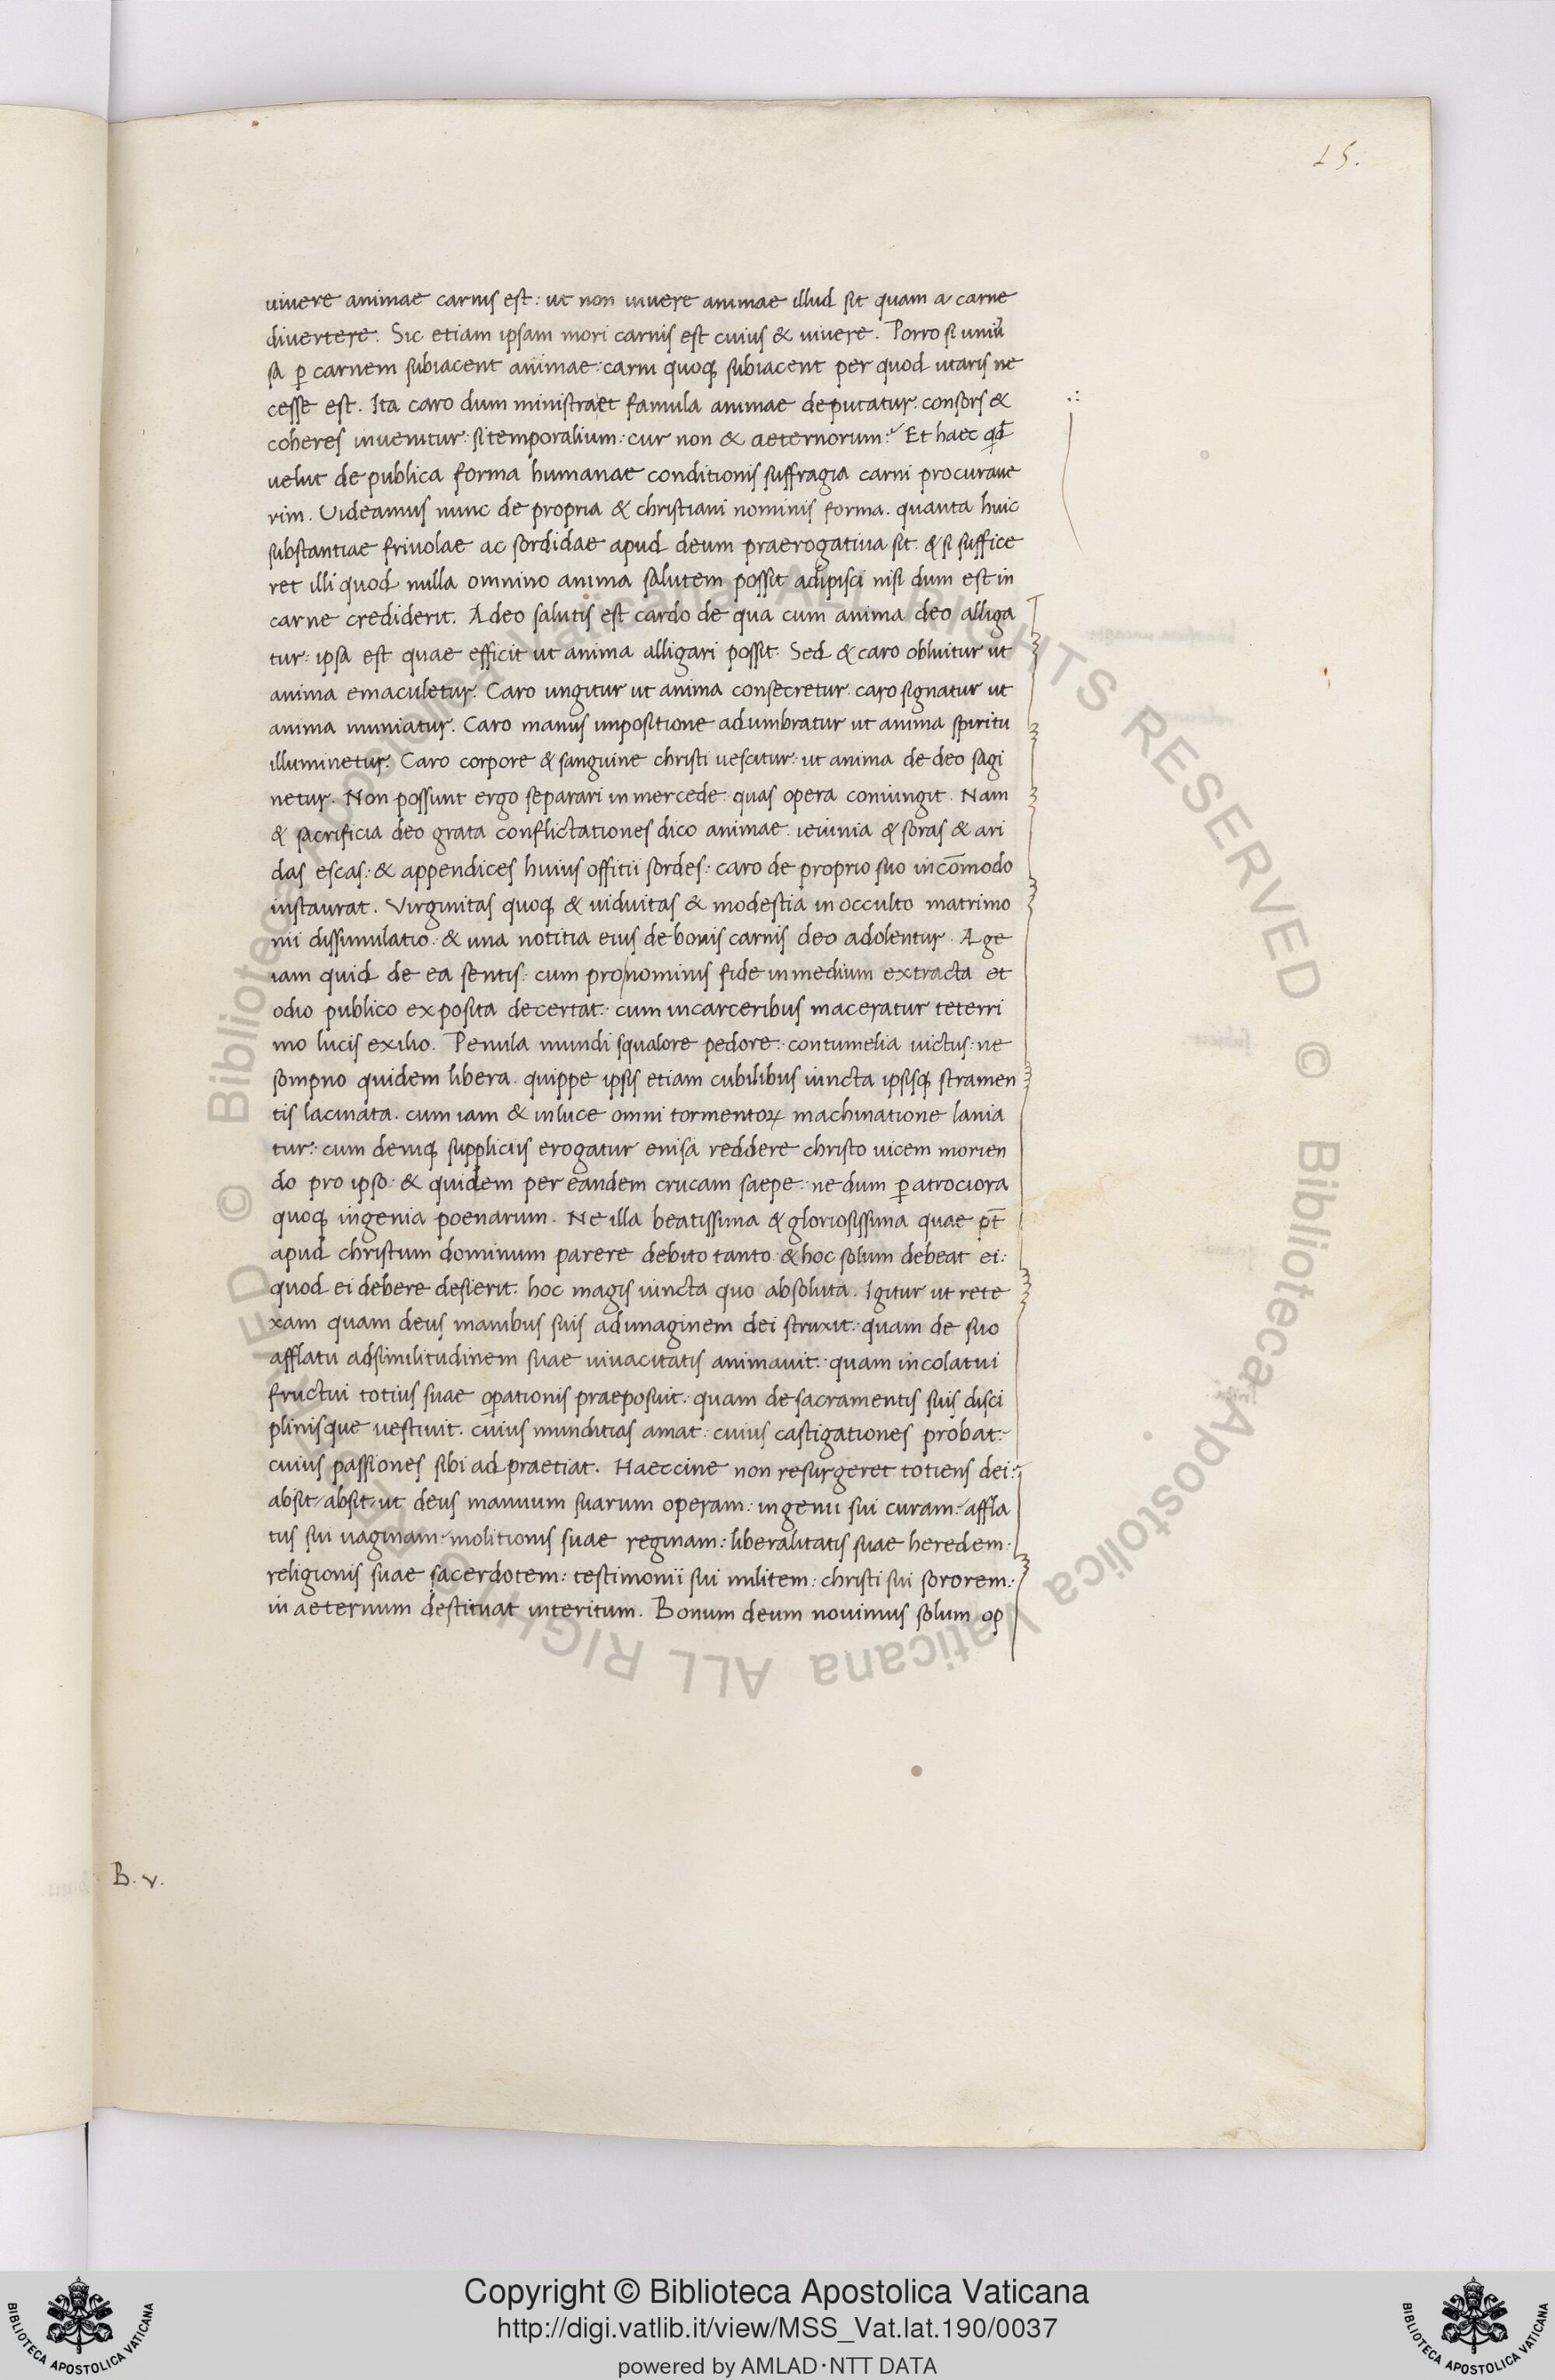 15.
uiuere animae carnis est: ut non uiuere animae illud sit quam a carne
diuertere. Sic etiam ipsam mori carnis est cuius & uiuere. Porro si uniũ
sa ꝑ carnem subiacent animae: carni quoqꝫ subiacent per quod utaris ne
cesse est. Ita caro dum ministraet famula animae deputatur. consors &
coheres inuenitur: si temporalium: cur non & aeternorum? Et haec qđ
uelut de publica forma humanae conditionis suffragia carni procuraue
rim. Uideamus nunc de propria & christiani nominis forma. quanta huic
substantiae friuolae ac sordidae apud deum praerogatiua sit. & si suffice
ret illi quod nulla omnino anima salutem possit adipisci nisi dum est in
carne crediderit. Adeo salutis est cardo de qua cum anima deo alliga
tur: ipsa est quae efficit ut anima alligari possit. Sed & caro obluitur ut
anima emaculetur. Caro ungitur ut anima consecretur. caro signatur ut
anima muniatur. Caro manus impositione adumbratur ut anima spiritu
illuminetur. Caro corpore & sanguine christi uescitur: ut anima de deo sagi
netur. Non possunt ergo separari in mercede: quas opera coniungit. Nam
& sacrificia deo grata conflictationes dico animae. ieiunia & soras & ari
das escas: & appendices huius offitii sordes: caro de proprio suo incōmodo
instaurat. Virginitas quoqꝫ & uiduitas & modestia in occulto matrimo
nii dissimulatio: & una notitia eius de bonis carnis deo adolentur. Age
iam quid de ea sentis: cum pro nominis fide in medium extracta et
odio publico exposita decertat: cum in carceribus maceratur teterri
mo lucis exilio. Penula mundi squalore pedore: contumelia uictus: ne
sompno quidem libera. quippe ipsis etiam cubilibus uincta ipsisqꝫ stramen
tis lacinata. cum iam & in luce omni tormentoꝝ machinatione lania
tur: cum deniqꝫ suppliciis erogatur enisa reddere christo uicem morien
do pro ipso: & quidem per eandem crucam saepe: ne dum ꝑ atrociora
quoqꝫ ingenia poenarum. Ne illa beatissima & gloriosissima quae pt̄
apud christum dominum parere debito tanto & hoc solum debeat ei:
quod ei debere desierit. hoc magis uincta quo absoluta. Igitur ut rete
xam quam deus manibus suis ad imaginem dei struxit: quam de suo
afflatu ad similitudinem suae uiuacitatis animauit: quam incolatui
fructui totius suae oꝑationis praeposuit: quam de sacramentis suis disci
plinisque uestiuit. cuius munditias amat: cuius castigationes probat:
cuius passiones sibi ad praetiat. Haeccine non resurgeret totiens dei:
absit absit ut deus manuum suarum operam: ingenii sui curam: affla
tus sui uaginam: molitionis suae reginam: liberalitatis suae heredem:
religionis suae sacerdotem: testimonii sui militem: christi sui sororem:
in aeternum destituat interitum. Bonum deum nouimus solum op
B. v.
Copyright © Biblioteca Apostolica Vaticana
http://digi.vatlib.it/view/MSS_Vat.lat.190/0037
powered by AMLAD·NTT DATA